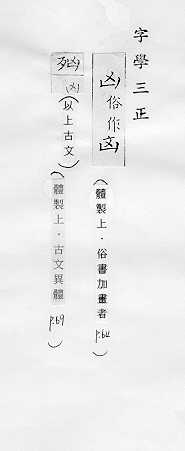 字學三正
凶俗作㐫（體製上．俗書加畫者 P.64）
（以上古文）（體製上．古文異體 P.69）